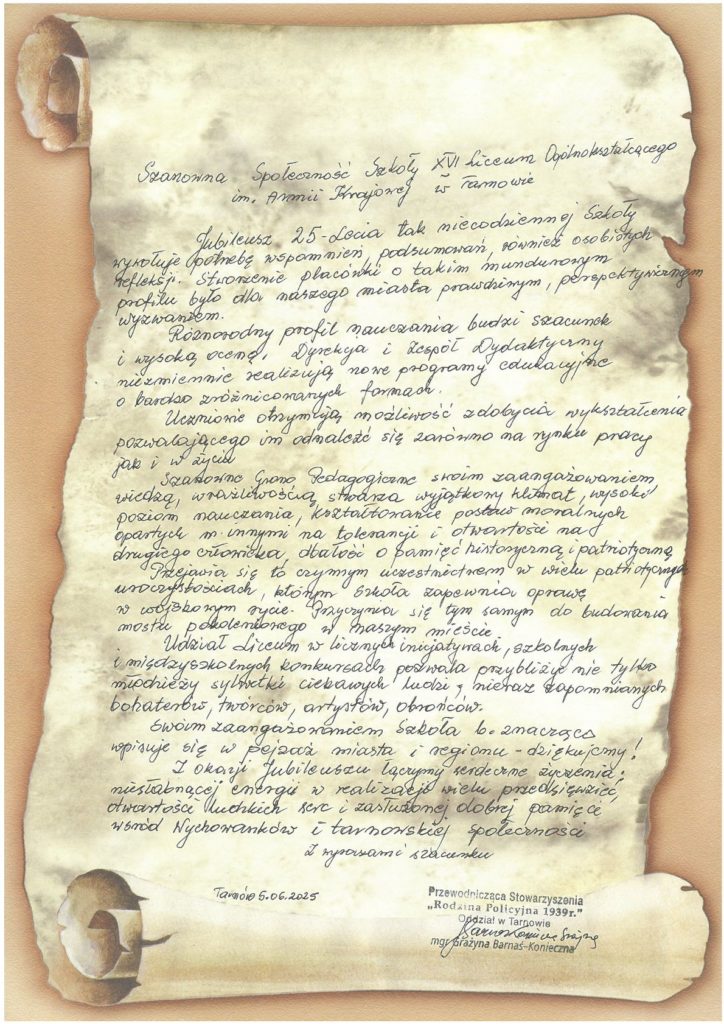 Szanowna Społeczność Szkoły XVI Liceum Ogólnokształcącego
im. Armii Krajowej w Tarnowie
Jubileusz 25-Lecia tak niecodziennej Szkoły
wywołuje potrzebę wspomnień, podsumowań, również osobistych
refleksji. Stworzenie placówki o takim mundurowym
profilu było dla naszego miasta prawdziwym, perspektywicznym
wyzwaniem.
Różnorodny profil nauczania budzi szacunek
i wysoką ocenę. Dyrekcja i Zespół Dydaktyczny
niezmiennie realizują nowe programy edukacyjne
o bardzo zróżnicowanych formach.
Uczniowie otrzymują możliwość zdobycia wykształcenia
pozwalającego im odnaleźć się zarówno na rynku pracy
jak i w życiu
Szanowne Grono Pedagogiczne swoim zaangażowaniem
wiedzą, wrażliwością, stwarza wyjątkowy klimat, wysoki
poziom nauczania, kształtowanie postaw moralnych
opartych m. innymi na tolerancji i otwartości na
drugiego człowieka, dbałość o pamięć historyczną i patriotyczną
Przejawia się to czynnym uczestnictwem w wielu patriotycznych
uroczystościach, którym szkoła zapewnia oprawę
w wojskowym rycie. Przyczynia się tym samym do budowania
mostu pokoleniowego w naszym mieście
Udział Liceum w licznych inicjatywach, szkolnych
i międzyszkolnych konkursach pozwala przybliżyć nie tylko
młodzieży sylwetki ciekawych ludzi, nieraz zapomnianych
bohaterów, twórców, artystów, obrońców.
Swoim zaangażowaniem Szkoła b. znacząco
wpisuje się w pejzaż miasta i regionu - dziękujemy!
Z okazji Jubileuszu łączymy serdeczne życzenia:
niesłabnącej energii w realizacji wielu przedsięwzięć,
otwartości ludzkich serc i zasłużonej dobrej pamięci
wśród Wychowanków i tarnowskiej społeczności
Z wyrazami szacunku
Tarnów 5.06.2025
Przewodnicząca Stowarzyszenia
„Rodzina Policyjna 1939r."
Oddział w Tarnowie
mgr Grażyna Barnaś-Konieczna